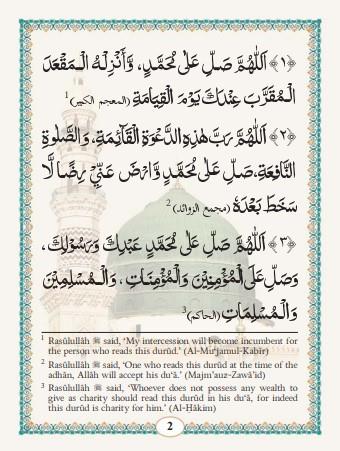 ﴿١﴾ اَللّٰهُمَّ صَلِّ عَلٰى مُحَمَّدٍ، وَّأَنْزِلْهُ الْمَقْعَدَ
الْمُقَرَّبَ عِنْدَكَ يَوْمَ الْقِيَامَةِ (المعجم الكبير) 1
﴿٢﴾ اَللّٰهُمَّ رَبَّ هٰذِهِ الدَّعْوَةِ الْقَآئِمَةِ، وَالصَّلٰوةِ
النَّافِعَةِ، صَلِّ عَلٰى مُحَمَّدٍ وَّارْضَ عَنِّيْ رِضًا لَّا
سَخَطَ بَعْدَهٗ (مجمع الزوائد) 2
﴿٣﴾ اَللّٰهُمَّ صَلِّ عَلٰى مُحَمَّدٍ عَبْدِكَ وَرَسُوْلِكَ،
وَصَلِّ عَلَى الْمُؤْمِنِيْنَ وَالْمُؤْمِنَاتِ، وَالْمُسْلِمِيْنَ
وَالْمُسْلِمَاتِ (الحاكم) 3
1 Rasūlullāh ﷺ said, ‘My intercession will become incumbent for
the person who reads this durūd.’ (Al-Mu‘jamul-Kabīr)
2 Rasūlullāh ﷺ said, ‘One who reads this durūd at the time of the
adhān, Allāh will accept his du‘ā.’ (Majma‘uz-Zawā’id)
3 Rasūlullāh ﷺ said, ‘Whoever does not possess any wealth to
give as charity should read this durūd in his du‘ā, for indeed
this durūd is charity for him.’ (Al-Ḥākim)
2